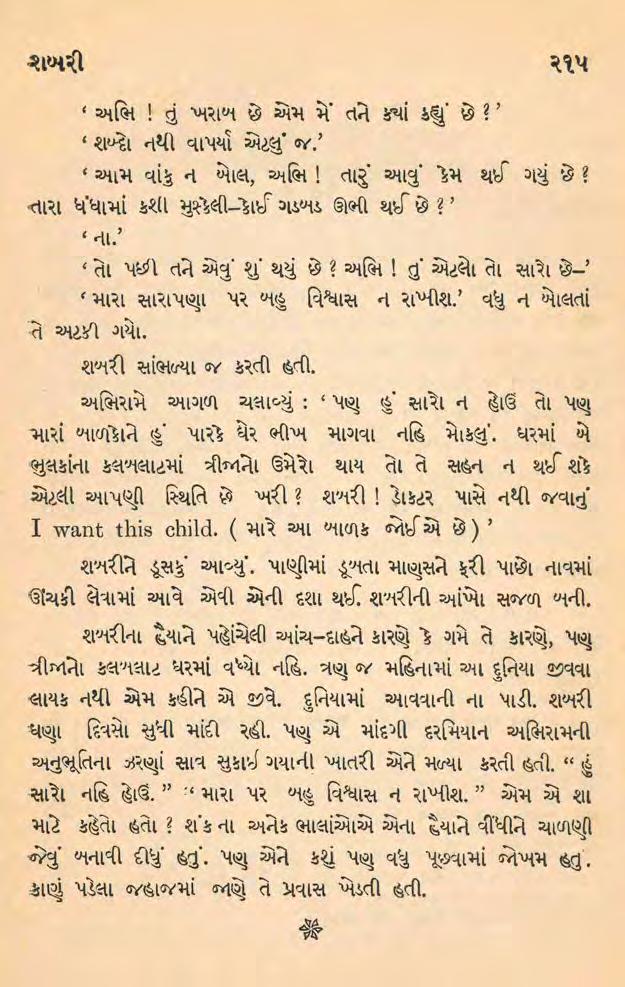 શબરી ૨૧૫
‘ અભિ ! તું ખરાબ છે એમ મેં તને ક્યાં કહ્યું છે ?’
‘ શબ્દો નથી વાપર્યા એટલું જ.’
‘ આમ વાંકુ ન બોલ, અભિ ! તારું આવું કેમ થઈ ગયું છે ?
તારા ધંધામાં કશી મુશ્કેલી–કોઈ ગડબડ ઊભી થઈ છે ?’
‘ ના.’
‘ તો પછી તને એવું શું થયું છે ? અભિ ! તું એટલો તો સારો છે–’
‘ મારા સારાપણા પર બહુ વિશ્વાસ ન રાખીશ.’ વધુ ન બોલતાં
તે અટકી ગયો.
શબરી સાંભળ્યા જ કરતી હતી.
અભિરામે આગળ ચલાવ્યું : ‘ પણ હું સારો ન હોઉં તો પણ
મારાં બાળકોને હું પારકે ઘેર ભીખ માગવા નહિ મોકલું. ઘરમાં બે
ભુલકાંના કલબલાટમાં ત્રીજાનો ઉમેરો થાય તો તે સહન ન થઈ શકે
એટલી આપણી સ્થિતિ છે ખરી ? શબરી ! ડોકટર પાસે નથી જવાનું
I want this child. ( મારે આ બાળક જોઈએ છે ) ’
શબરીને ડૂસકું આવ્યું. પાણીમાં ડૂબતા માણસને ફરી પાછો નાવમાં
ઊંચકી લેવામાં આવે એવી એની દશા થઈ. શબરીની આંખો સજળ બની.
શબરીના હૈયાને પહોંચેલી આંચ–દાહને કારણે કે ગમે તે કારણે, પણ
ત્રીજાનો કલબલાટ ઘરમાં વધ્યો નહિ. ત્રણ જ મહિનામાં આ દુનિયા જીવવા
લાયક નથી એમ કહીને એ જીવે. દુનિયામાં આવવાની ના પાડી. શબરી
ઘણા દિવસો સુધી માંદી રહી. પણ એ માંદગી દરમિયાન અભિરામની
અનુભૂતિના ઝરણાં સાવ સુકાઈ ગયાની ખાતરી એને મળ્યા કરતી હતી. “ હું
સારો નહિ હોઉં. ” “ મારા પર બહુ વિશ્વાસ ન રાખીશ. ” એમ એ શા
માટે કહેતો હતો ? શંકના અનેક ભાલાંઓએ એના હૈયાને વીંધીને ચાળણી
જેવું બનાવી દીધું હતું. પણ એને કશું પણ વધુ પૂછવામાં જોખમ હતું.
કાણું પડેલા જહાજમાં જાણે તે પ્રવાસ ખેડતી હતી.